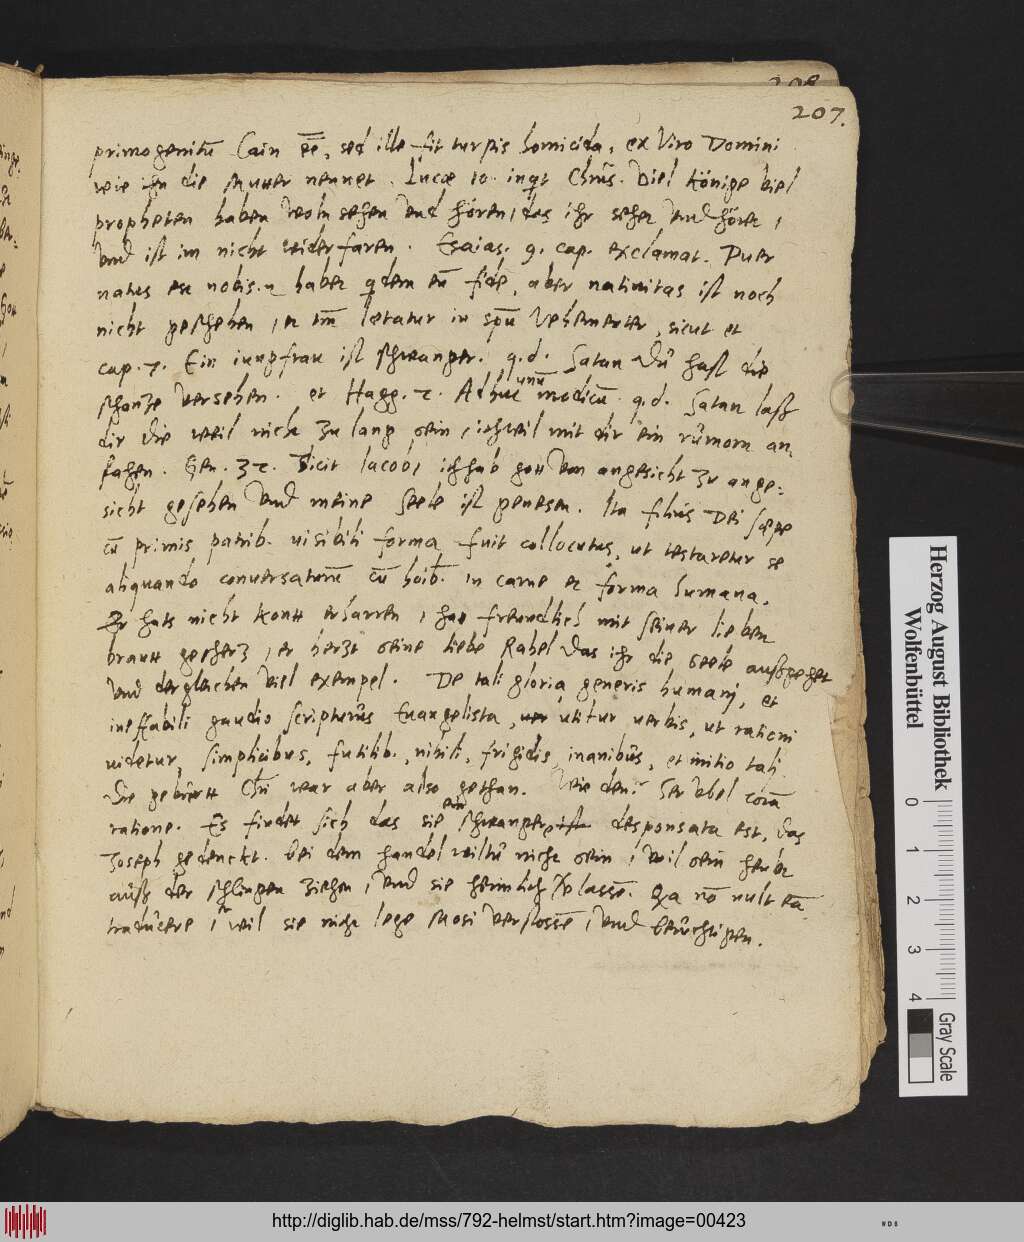 208
207.
primogenitū Cain eē, sed ille fit turpis homicida, ex Viro Domini
wie ihn die Mutter nennet. Lucæ 10. inqt Chrūs. Viel Könige viel
propheten haben wolln sehen vnd hören, das ihr sehet vnd höret,
vnd ist im nicht widerfaren. Esaias. 9. cap. exclamat. Puer
natus est nobis. haber qdem eū fide, aber natiuitas ist noch
nicht geschehen, et tm̄ lætatur in spū Vehementer, sicut et
cap. 7. Ein iungfrau ist schwanger. q.d. Satan Dū hast die
schantze versehen. et Hagg. 2. Adhuc unū modicū. q.d. Satan lasß
dir die weil nicht zu lang sein, ich wil mit dir ein rūmorn an
fahen. Gen. 32. Dicit Iacob, ich hab gott von angesicht zu ange:
sicht gesehen vnd meine Seele ist genesen. Ita filius Dei sæpe
cū primis patrib. uisibili forma fuit collocutus, ut testaretur se
aliquando conuersaturū cū hoib. in carne et forma humana.
Er hats nicht kontt erharren, hat freundlich mit seiner lieben
brautt geschertz, er hertzt seine liebe Rahel das ihr die seele außgehet
vnd dergleichen viel exempel. De tali gloria generis humani, et
ineffabili gaudio scripturus Euangelista, utitur uerbis, ut rationi
uidetur, simplicibus, futilib., nihili, frigidis, inanibūs, et initio tali
Die gebūrtt Chri war aber also gethan. Wie den? Ser vbel corā
ratione. Es findet sich das sie ein schwanger ist desponsata est, das
Joseph gedenckt. bei dem handel wiltū nicht sein, wil sein heubt
auß der schlingen ziehen, vnd sie heimlich lassē. Qa nō uult eā
traducere, weil sie nicht lege Mosi verstossē, vnd berūchtigen.
Herzog August Bibliothek
Wolfenbüttel
0
1
2
3
4
Gray Scale
http://diglib.hab.de/mss/792-helmst/start.htm?image=00423